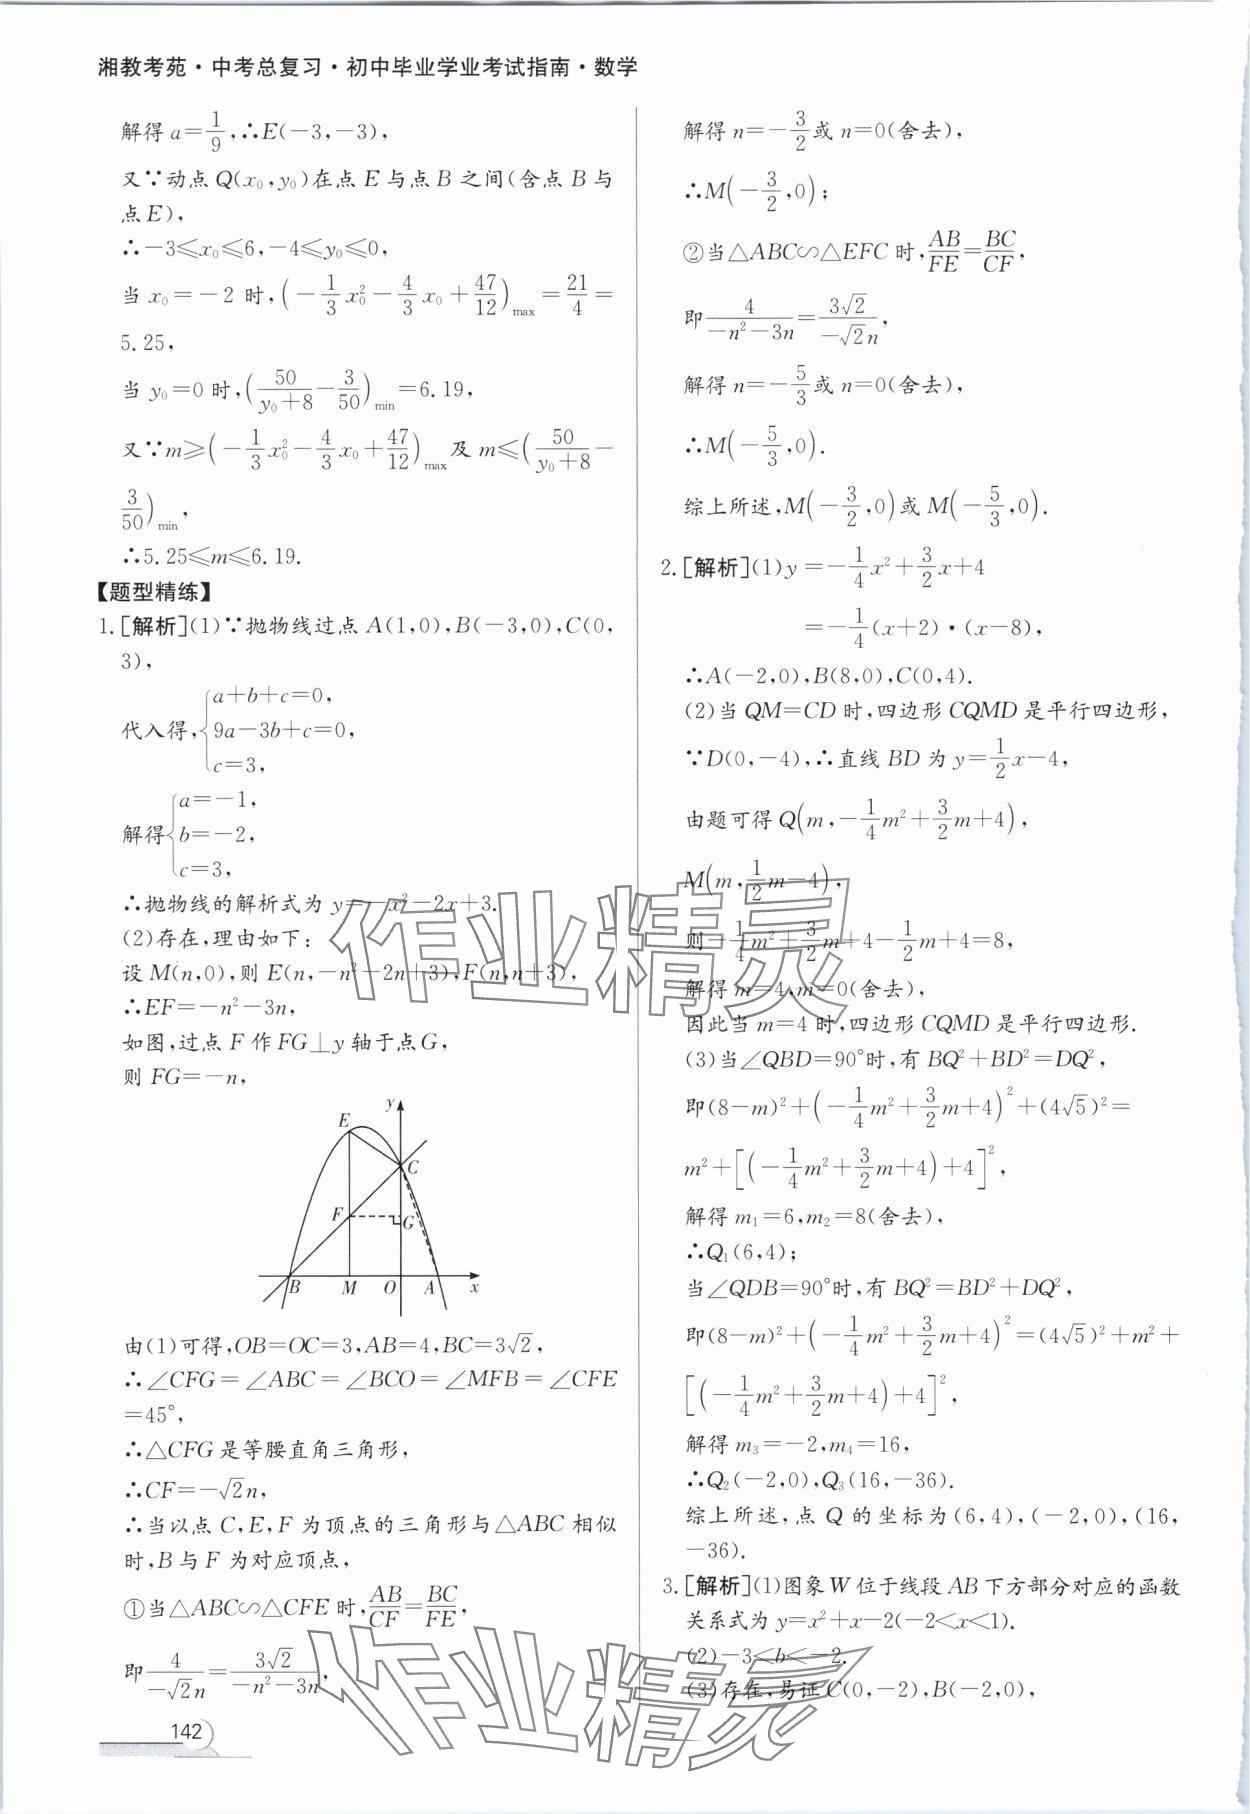 湘教考苑·中考总复习·初中毕业学业考试指南·数学
解得 a=1/9,∴E(-3,-3),
又∵动点 Q(x₀,y₀)在点 E 与点 B 之间(含点 B 与
点 E),
∴-3≤x₀≤6,-4≤y₀≤0,
当 x₀=-2 时,(-1/3 x₀²-4/3 x₀+47/12)max=21/4=
5.25,
当 y₀=0 时,(50/(y₀+8)-3/50)min=6.19,
又∵m≥(-1/3 x₀²-4/3 x₀+47/12)max 及 m≤(50/(y₀+8)-
3/50)min,
∴5.25≤m≤6.19.
【题型精练】
1.[解析](1)∵抛物线过点 A(1,0),B(-3,0),C(0,
3),
代入得,{a+b+c=0,
9a-3b+c=0,
c=3,
解得{a=-1,
b=-2,
c=3,
∴抛物线的解析式为 y=-x²-2x+3.
(2)存在,理由如下:
设 M(n,0),则 E(n,-n²-2n+3),F(n,n+3),
∴EF=-n²-3n,
如图,过点 F 作 FG⊥y 轴于点 G,
则 FG=-n,
y
E
C
F
G
B M O A x
由(1)可得,OB=OC=3,AB=4,BC=3√2,
∴∠CFG=∠ABC=∠BCO=∠MFB=∠CFE
=45°,
∴△CFG 是等腰直角三角形,
∴CF=-√2n,
∴当以点 C,E,F 为顶点的三角形与△ABC 相似
时,B 与 F 为对应顶点,
①当△ABC∽△CFE 时,AB/CF=BC/FE,
即4/(-√2n)=3√2/(-n²-3n),
142
解得 n=-3/2或 n=0(舍去),
∴M(-3/2,0);
②当△ABC∽△EFC 时,AB/FE=BC/CF,
即4/(-n²-3n)=3√2/(-√2n),
解得 n=-5/3或 n=0(舍去),
∴M(-5/3,0).
综上所述,M(-3/2,0)或 M(-5/3,0).
2.[解析](1)y=-1/4x²+3/2x+4
=-1/4(x+2)·(x-8),
∴A(-2,0),B(8,0),C(0,4).
(2)当 QM=CD 时,四边形 CQMD 是平行四边形,
∵D(0,-4),∴直线 BD 为 y=1/2x-4,
由题可得 Q(m,-1/4m²+3/2m+4),
M(m,1/2m-4),
则-1/4m²+3/2m+4-1/2m+4=8,
解得 m=4,m=0(舍去),
因此当 m=4 时,四边形 CQMD 是平行四边形.
(3)当∠QBD=90°时,有 BQ²+BD²=DQ²,
即(8-m)²+(-1/4m²+3/2m+4)²+(4√5)²=
m²+[(-1/4m²+3/2m+4)+4]²,
解得 m₁=6,m₂=8(舍去),
∴Q₁(6,4);
当∠QDB=90°时,有 BQ²=BD²+DQ²,
即(8-m)²+(-1/4m²+3/2m+4)²=(4√5)²+m²+
[(-1/4m²+3/2m+4)+4]²,
解得 m₃=-2,m₄=16,
∴Q₂(-2,0),Q₃(16,-36).
综上所述,点 Q 的坐标为(6,4),(-2,0),(16,
-36).
3.[解析](1)图象 W 位于线段 AB 下方部分对应的函数
关系式为 y=x²+x-2(-2<x<1).
(2)-3<b<-2.
(3)存在,易证 C(0,-2),B(-2,0),
作业精灵
作业精灵